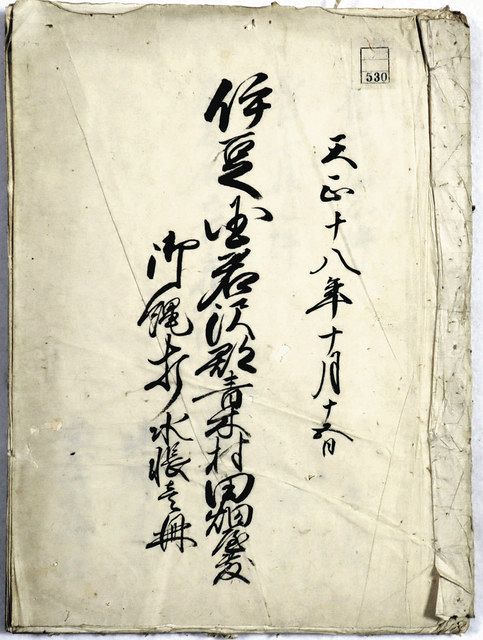 530
天正十八年十月十五日
伊豆国君沢郡青木村田畑屋敷
御縄打水帳壱冊